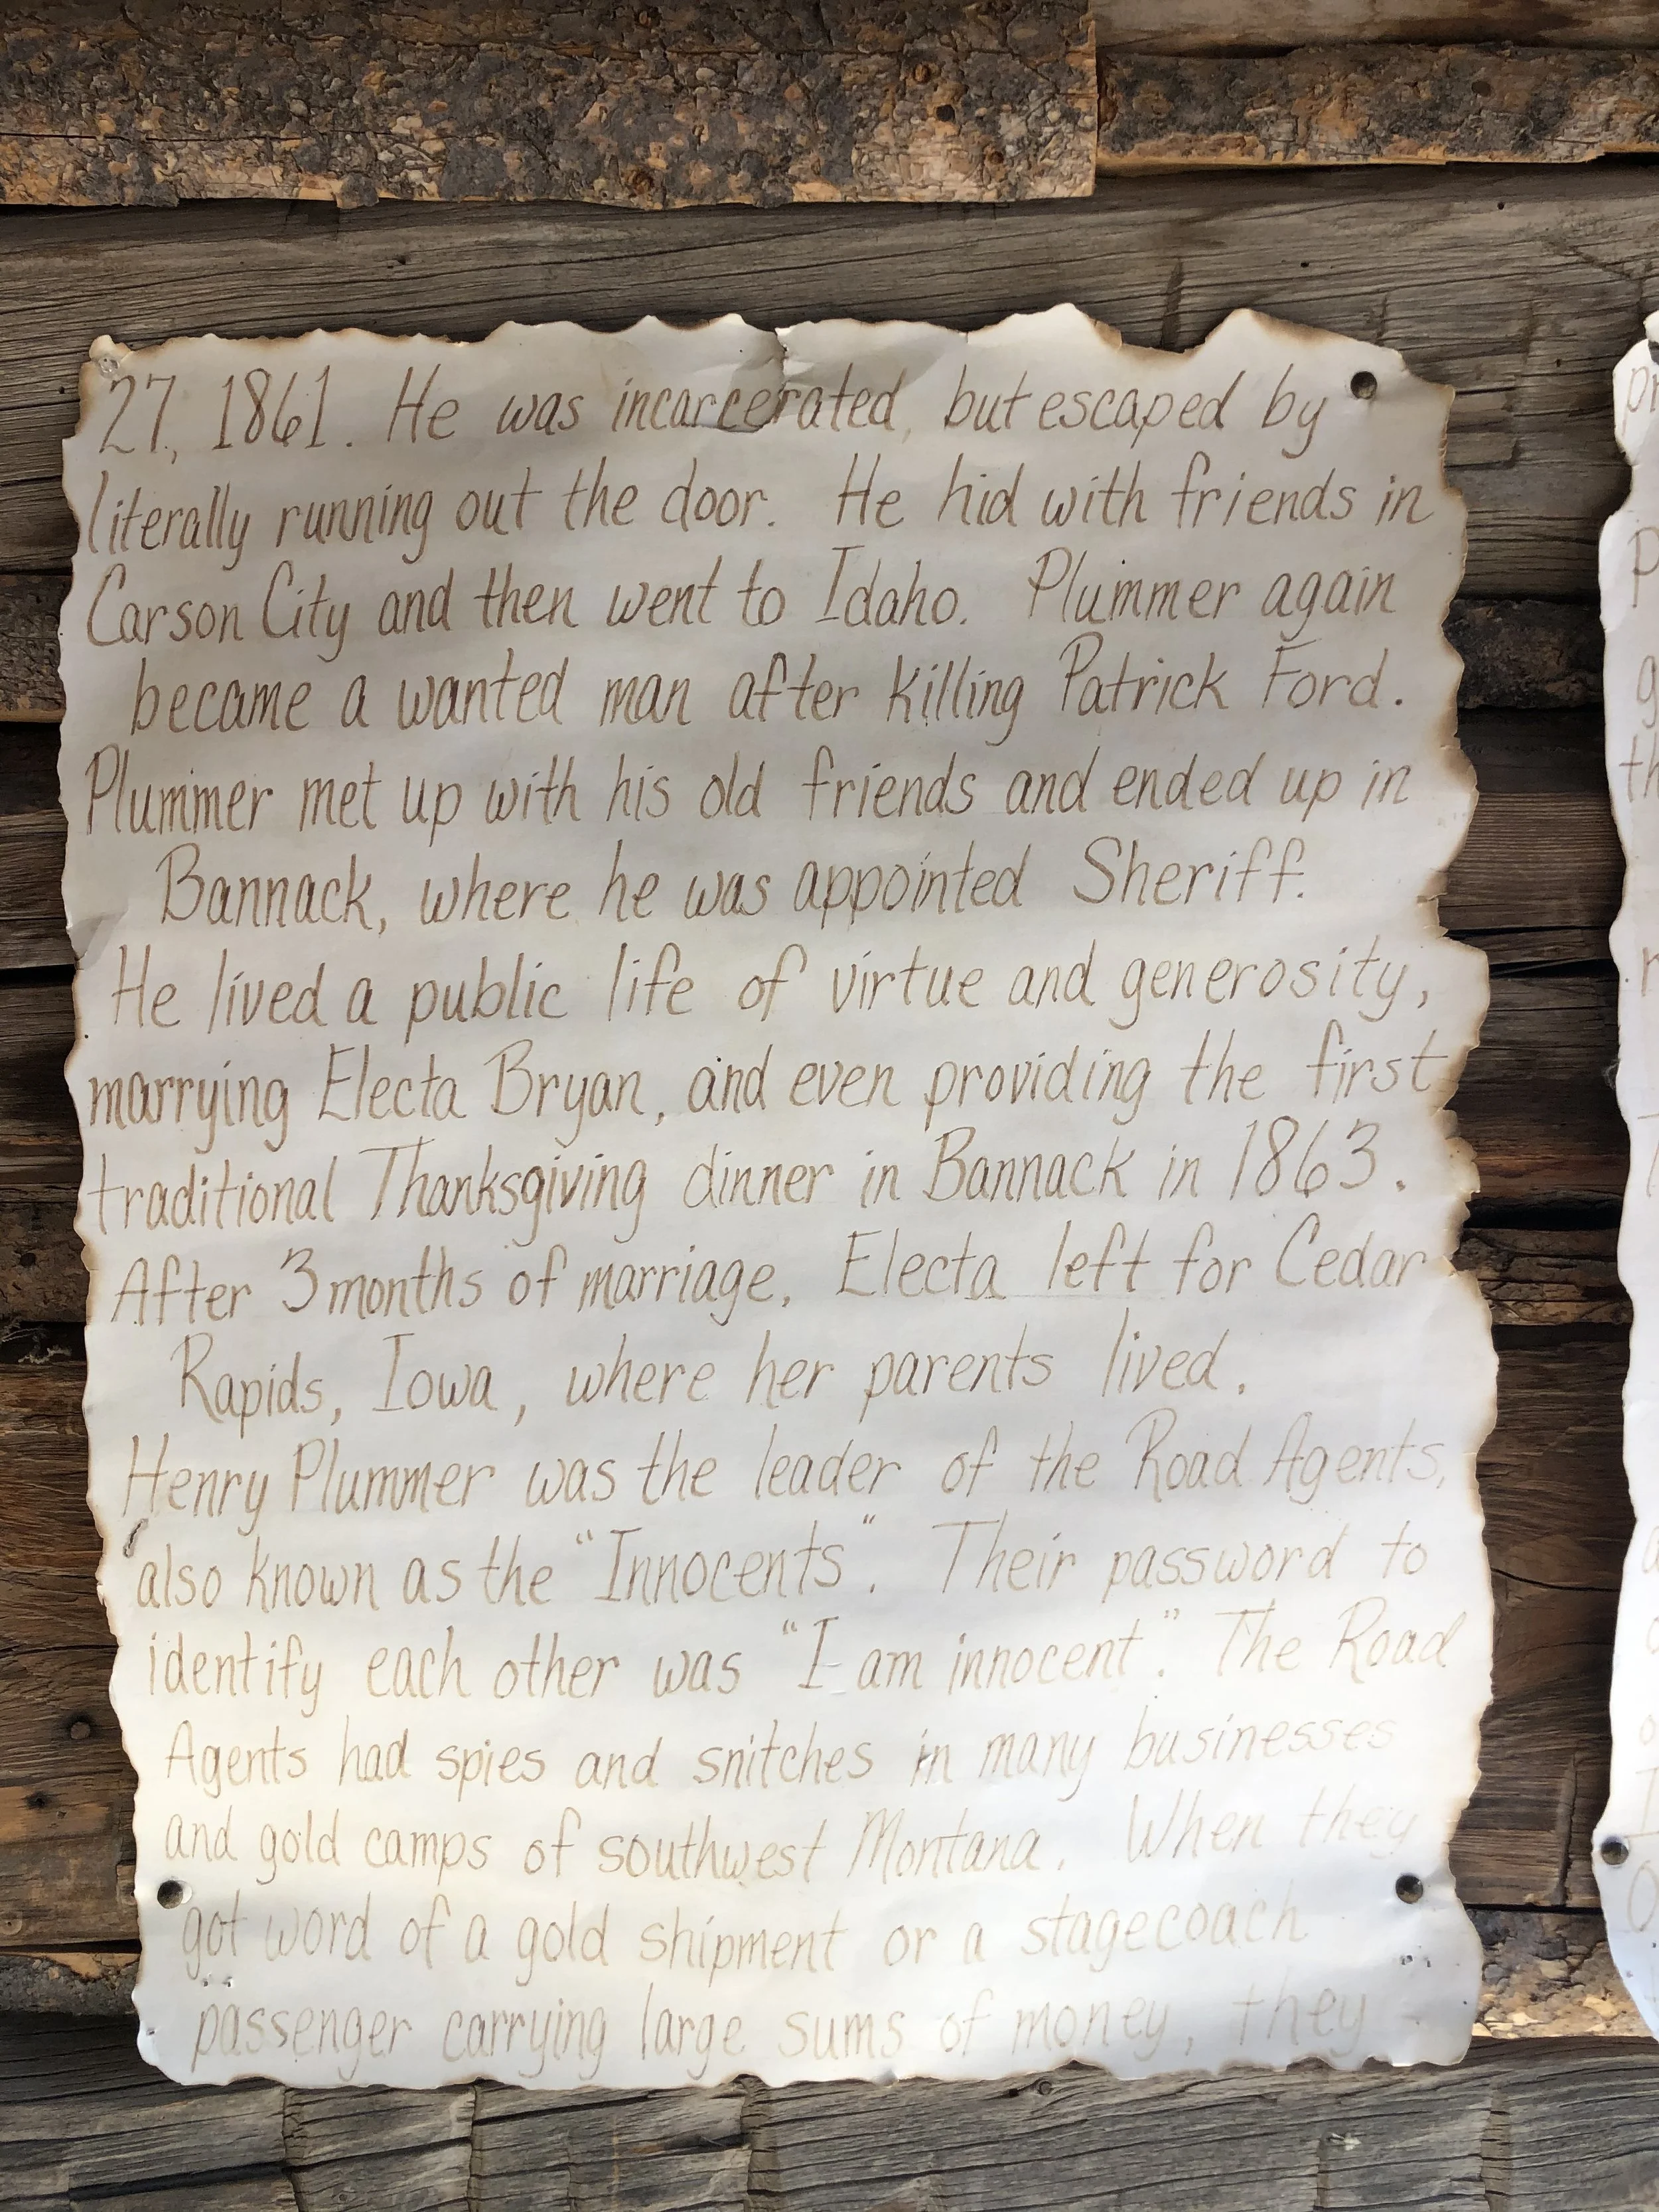 27, 1861. He was incarcerated, but escaped by
literally running out the door. He hid with friends in
Carson City and then went to Idaho. Plummer again
became a wanted man after killing Patrick Ford.
Plummer met up with his old friends and ended up in
Bannack, where he was appointed Sheriff.
He lived a public life of virtue and generosity,
marrying Electa Bryan, and even providing the first
traditional Thanksgiving dinner in Bannack in 1863.
After 3 months of marriage, Electa left for Cedar
Rapids, Iowa, where her parents lived.
Henry Plummer was the leader of the Road Agents,
also known as the "Innocents". Their password to
identify each other was "I am innocent". The Road
Agents had spies and snitches in many businesses
and gold camps of southwest Montana. When they
got word of a gold shipment or a stagecoach
passenger carrying large sums of money, they